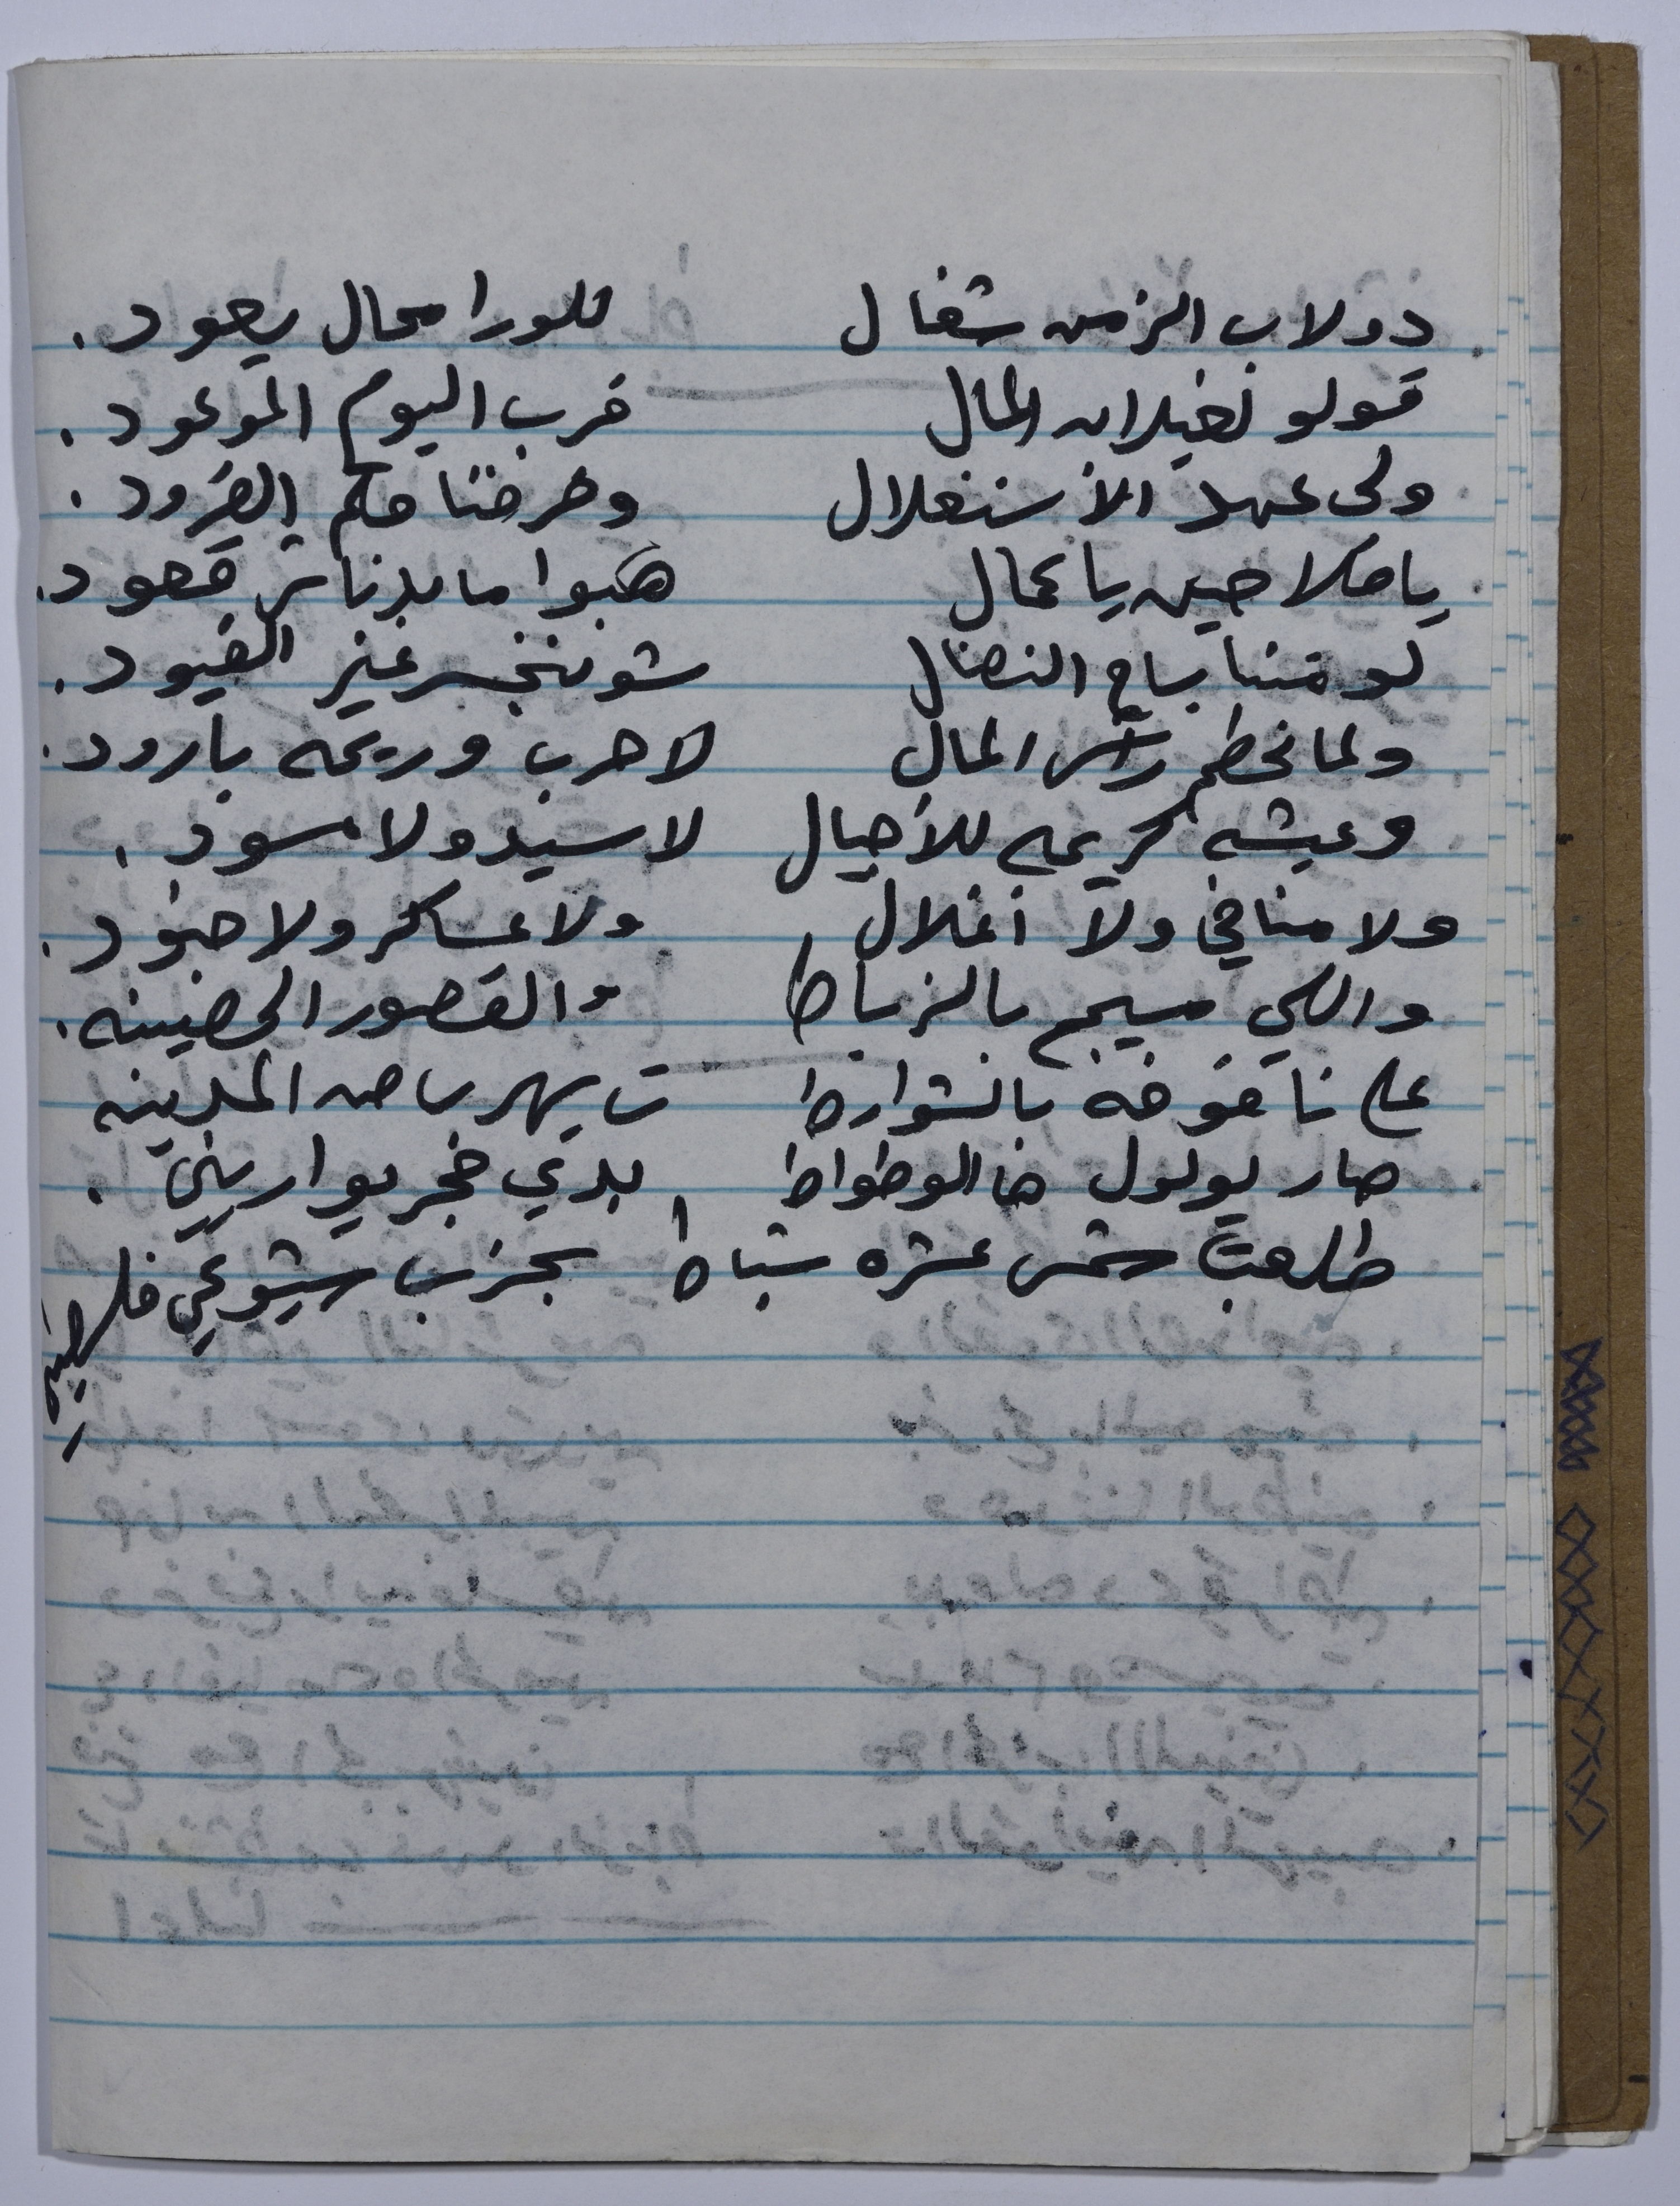 دولاب الزمن شغال للورا محال يعود.
قولو لغيلان المال قرب اليوم الموعود.
ولى عهد الأستغلال وطرفنا حكم القرود.
يا فلاحين يا عمال هبوا ما بدنا قعود.
لو متنا بساح النضال شو بنخسر غير القيود.
ولما نحطم رأس المال لا حرب وريحة بارود.
وعيشه كريمه للأجيال لا سيد ولا مسود.
ولا منافي ولا أغلال ولا عساكر ولا جنود.
واللي مسيج بالزباط والقصور الحصينه.
على نافوخه بالشواريط ت يهرب من المدينه
صار يولول هالوطواط بدي خجر يواريني.
طلعت شمس عشره شباط بحزب شيوعي فلسطيني